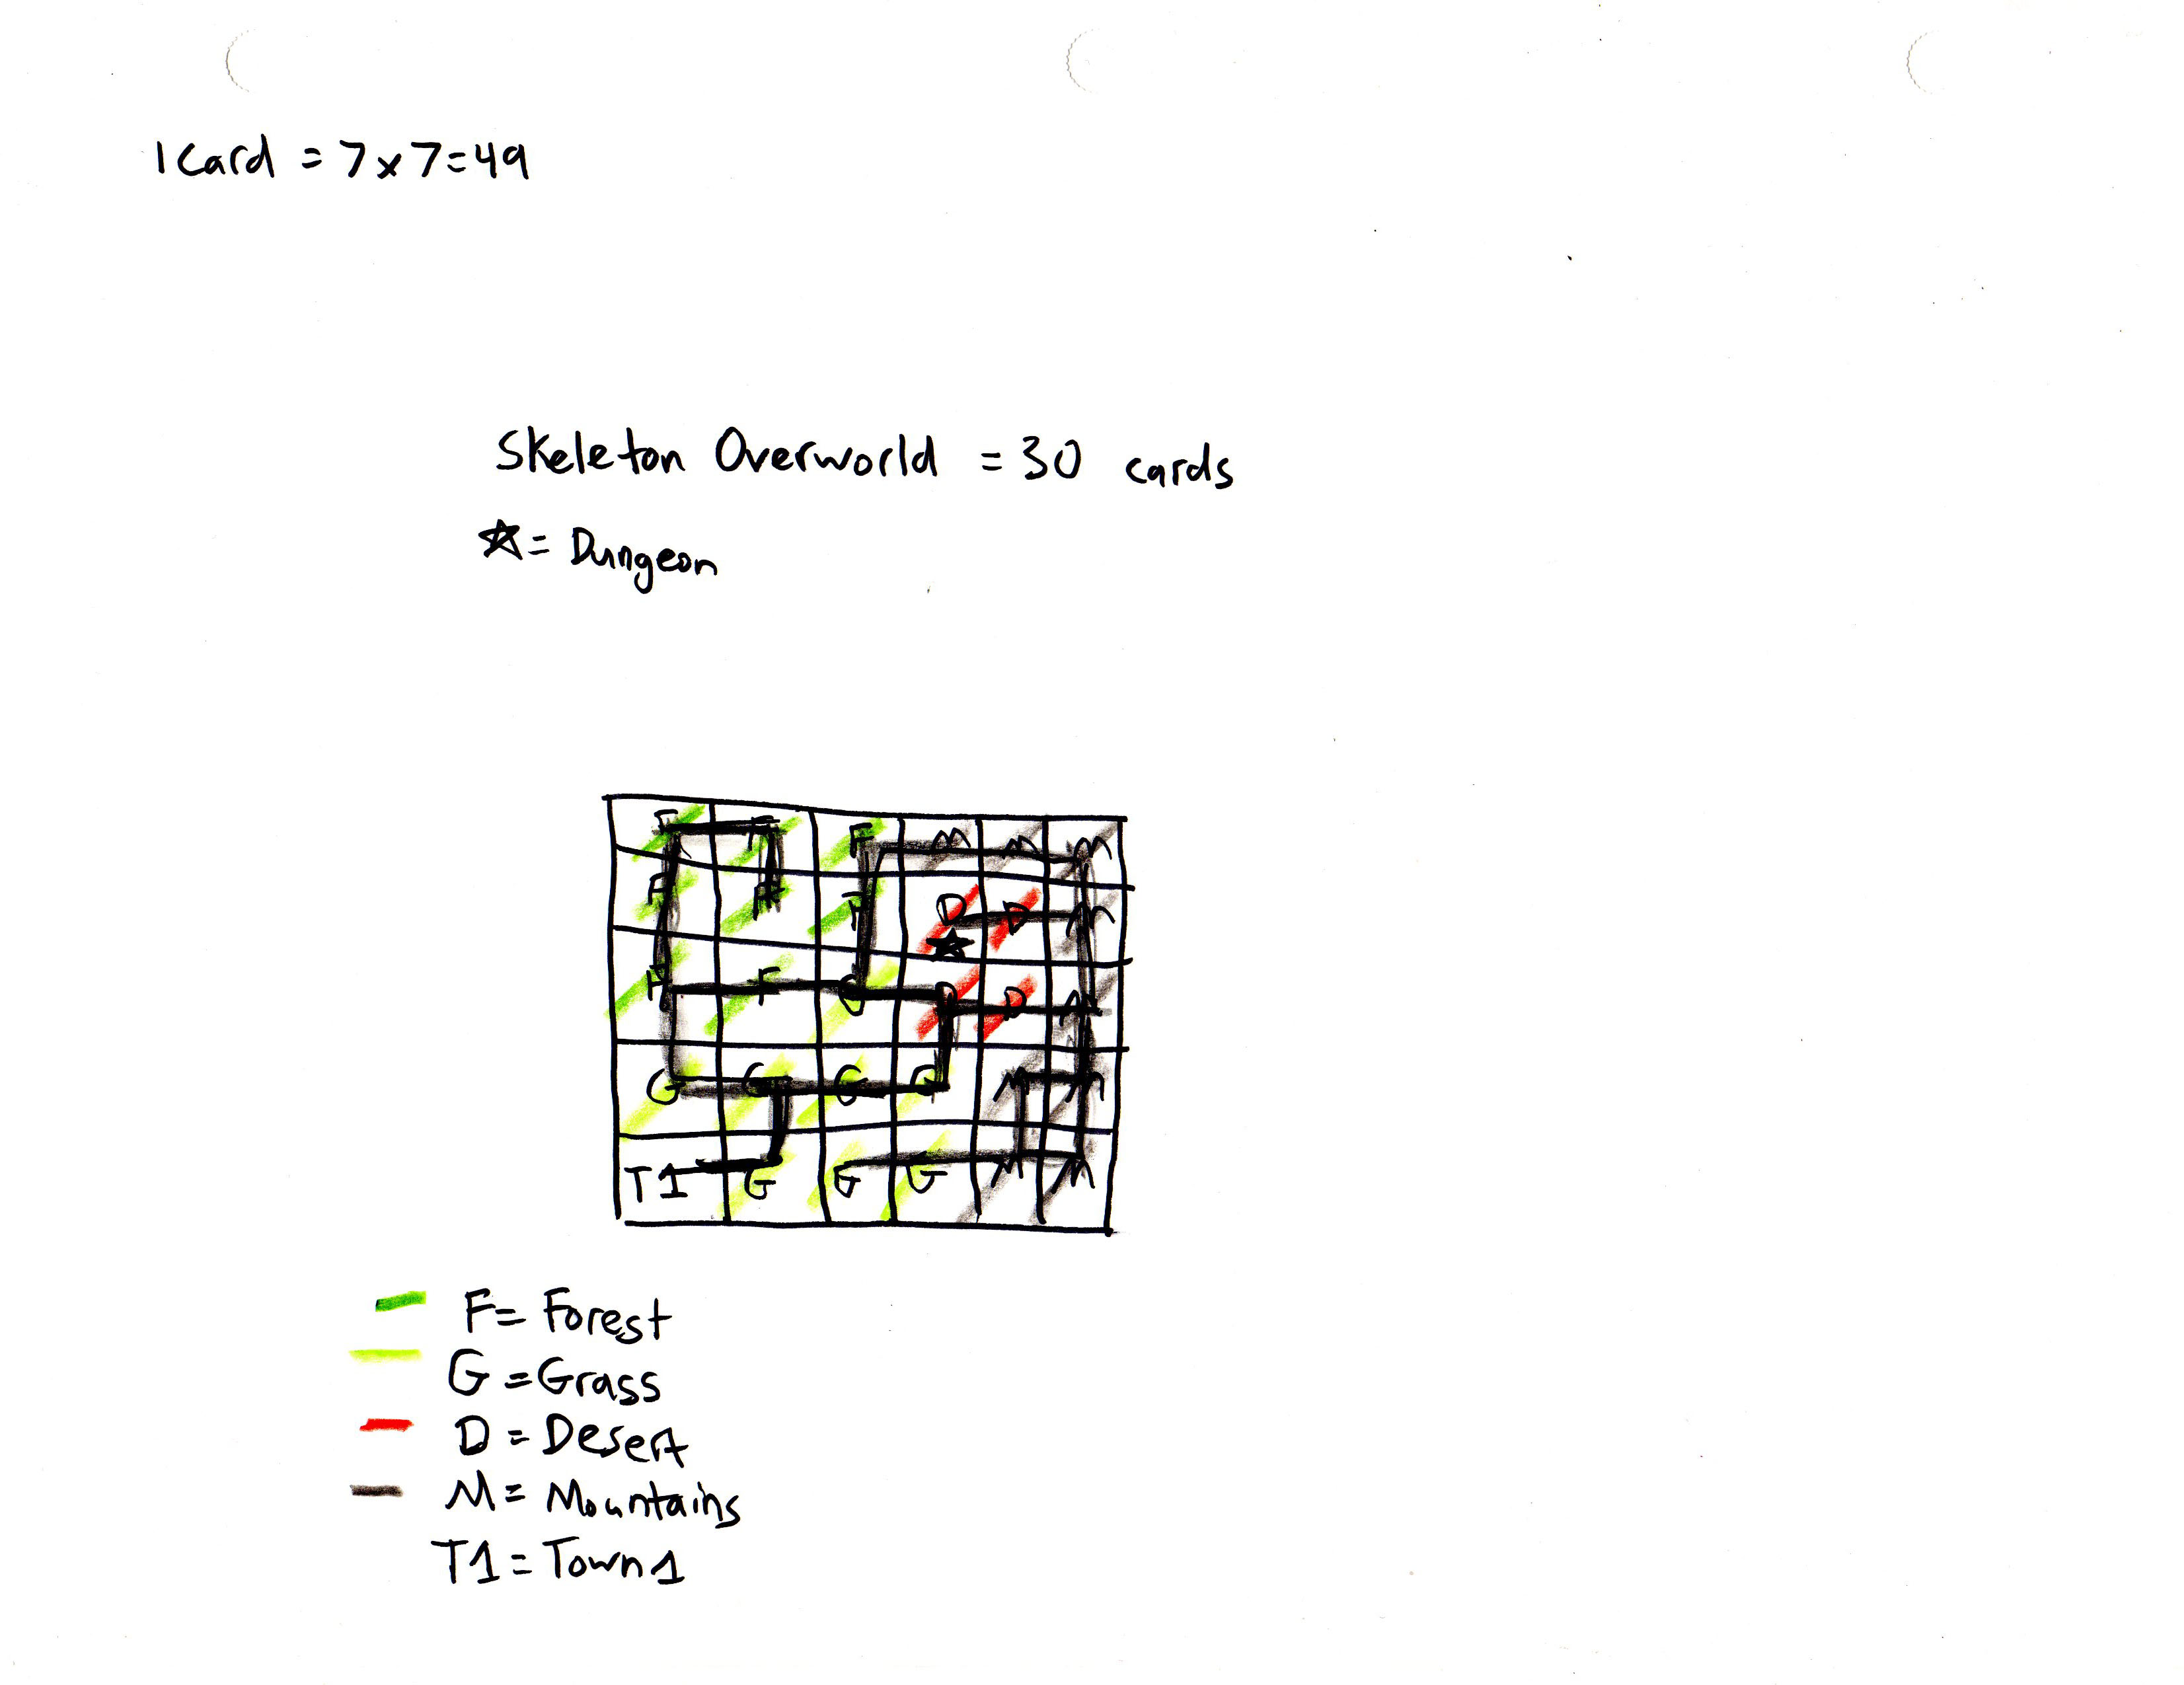 1 Card = 7x7=49
Skeleton Overworld = 30 cards
☆= Dungeon
F F F M M M
F F F D D M
F F G D D M
G G G G M M
T1 G G G M M
F= Forest
G =Grass
D = Desert
M= Mountains
T1=Town1